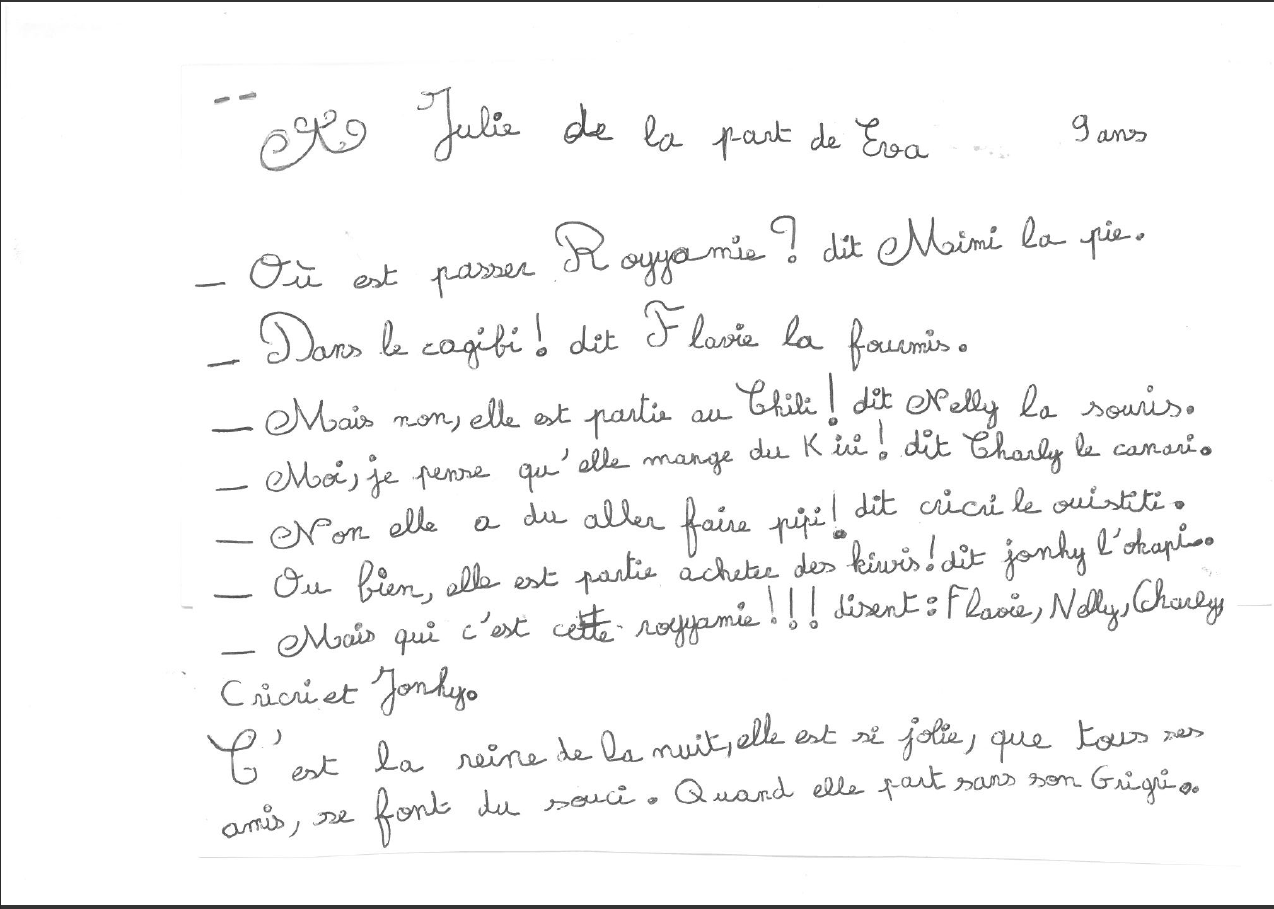 A Julie de la part de Eva 9 ans
_ Où est passer Royyamie? dit Mimi la pie.
_ Dans le cagibi! dit Flavie la fourmis.
_ Mais non, elle est partie au Chili! dit Nelly la souris.
_ Moi, je pense qu'elle mange du Kiri! dit Charly le canari.
_ Non elle a du aller faire pipi! dit cricri le ouistiti.
_ Ou bien, elle est partie achetee des kiwis! dit jonhy l'okapi.
_ Mais qui c'est cette royyamie!!! disent: Flavie, Nelly, Charly,
Cricri et Jonhy.
C'est la reine de la nuit, elle est si jolie, que tous ses
amis, se font du souci. Quand elle part sans son Grigri.